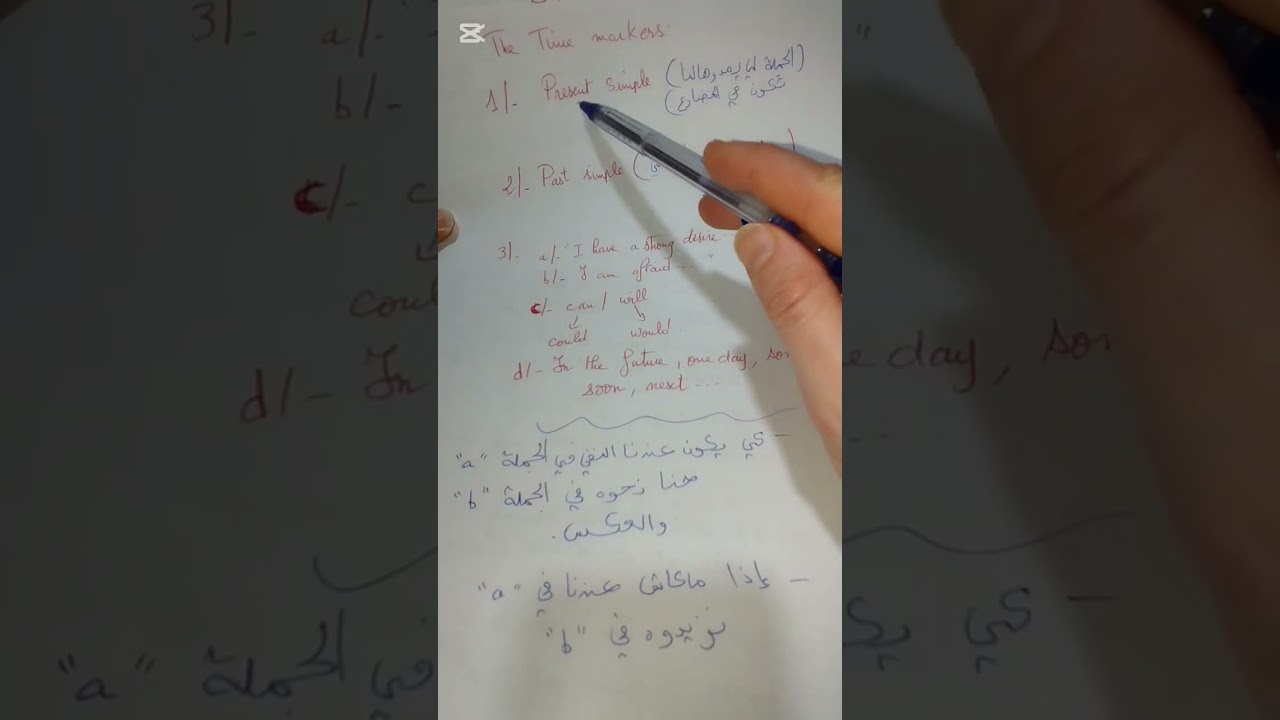 The Time markers:
1/- Present simple (الجملة لي يمدوهالنا
تكون في المضارع)
2/- Past simple (
3/- a/- "I have a strong desire ...
b/- I am afraid ... "
c/- can / will
could would
d/- In the future, one day,
soon, next ...
- كي يكون عندنا النفي في الجملة "a"
حنا نحوه في الجملة "b"
والعكس.
- إذا مكاش عندنا في "a"
نزيدوه في "b"